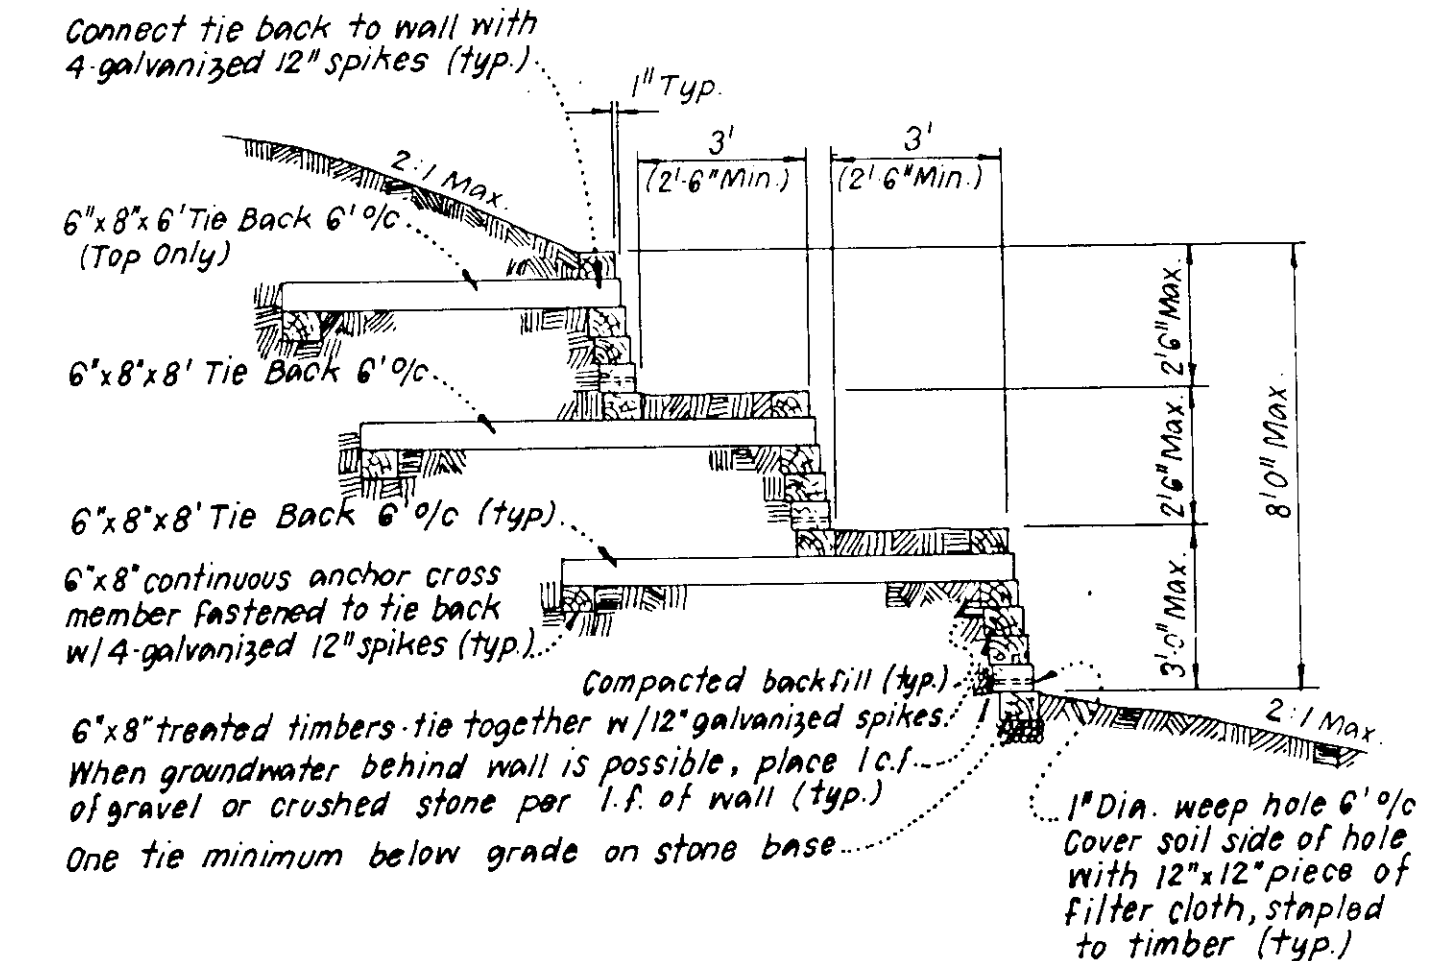 Connect tie back to wall with
4-galvanized 12" spikes (typ.)
1" Typ.
3'
(2'-6" Min.)
3'
(2'-6" Min.)
2:1 Max.
6"x8"x6' Tie Back 6' o/c
(Top Only)
6"x8"x8' Tie Back 6' o/c
6"x8"x8' Tie Back 6' o/c (typ)
6"x8" continuous anchor cross
member fastened to tie back
w/4-galvanized 12" spikes (typ.)
2'6" Max.
2'6" Max.
3'-0" Max
8'0" Max
Compacted backfill (typ.)
6"x8" treated timbers-tie together w/12" galvanized spikes.
When groundwater behind wall is possible, place 1 c.f.
of gravel or crushed stone per l.f. of wall (typ.)
One tie minimum below grade on stone base
2:1 Max.
1" Dia. weep hole 6' o/c
Cover soil side of hole
with 12"x12" piece of
filter cloth, stapled
to timber (typ.)